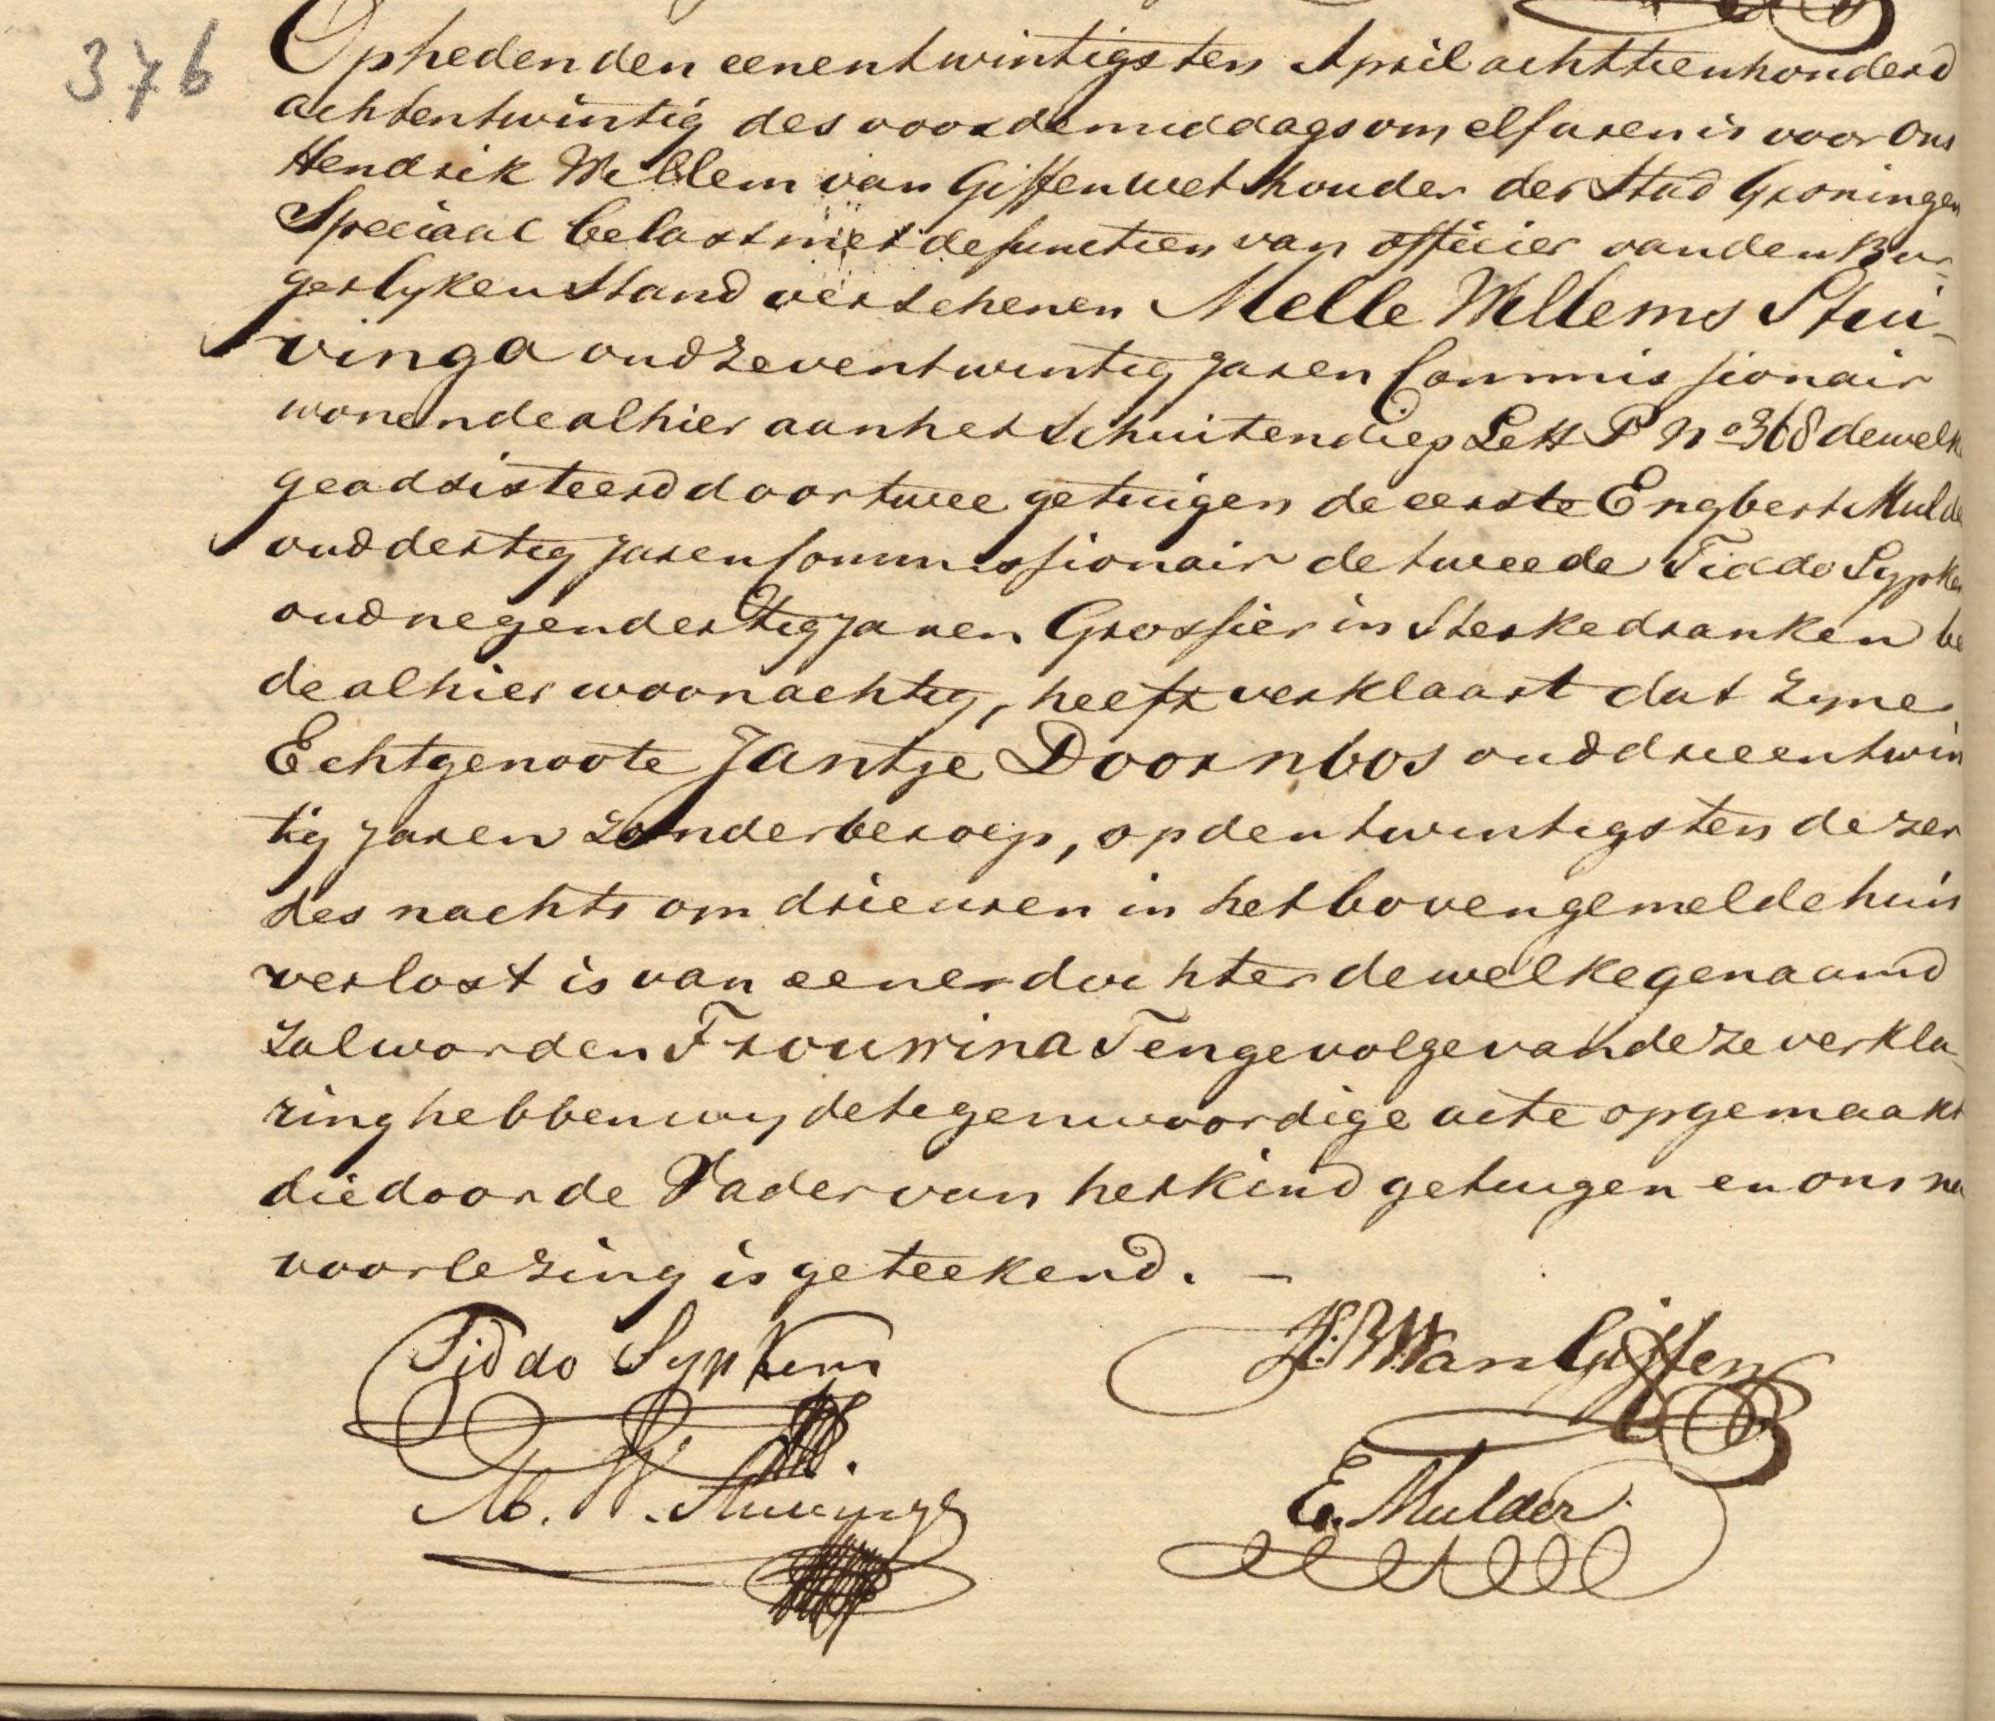 376
Opheden den eenentwintigsten April achttienhonderd
achtentwintig des voordemiddags om elf uren is voor Ons
Hendrik Willem van Giffen wethouder der Stad Groningen
Speciaal belast met de functien van officier van den Bur-
gerlyken Stand verschenen Melle Willems Stui-
vinga oud zeventwintig Jaren Commissionair
wonende alhier aan het Schuitendiep Lett P No 368 dewelke
geadsisteerd door twee getuigen de eerste Engbert Mulder
oud dertig Jaren Commissionair de tweede Tiddo Sypkens
oud negendertig Jaren Grossier in Sterkedranken bei
de alhier woonachtig, heeft verklaart dat zyne
Echtgenoote Jantje Doornbos oud drieentwin
tig Jaren zonder beroep, op den twintigsten dezer
des nachts om drie uren in het bovengemelde huis
verlost is van eener dochter dewelke genaamd
zal worden Frouwina Tengevolge van deze verkla-
ring hebben wy de tegenwoordige acte opgemaakt
die door de Vader van het kind getuigen en ons na
voorlezing is geteekend. –
Tiddo Sypkens H.W. Van Giffen
M. W. Stuivinga E. Mulder